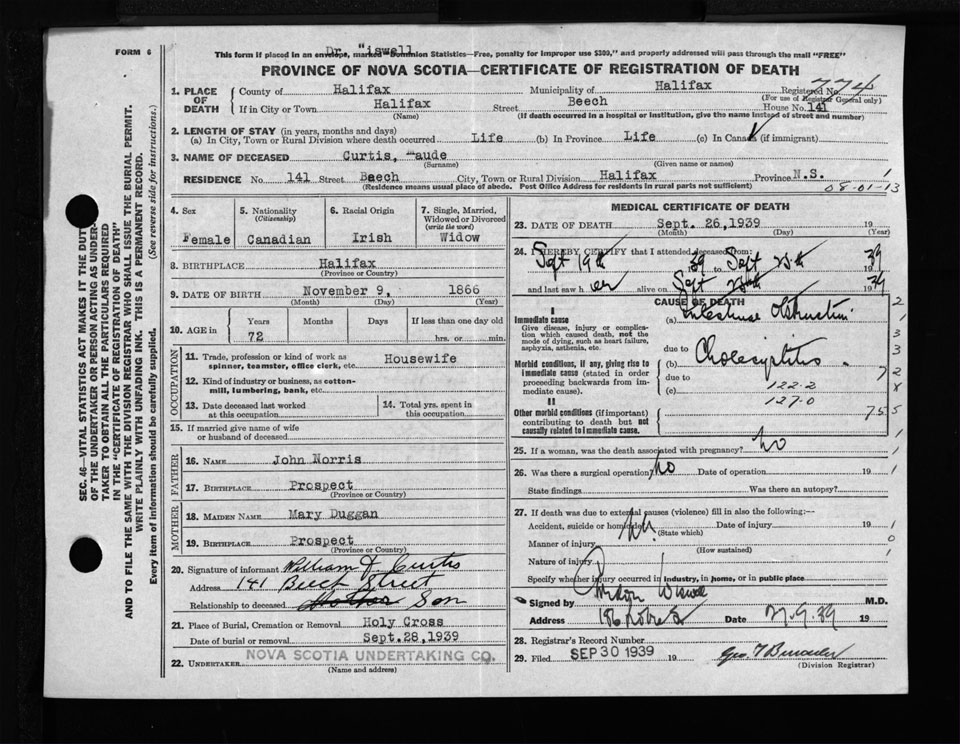 FORM 6
Dr. Wiswell
This form if placed in an envelope, marked "Dominion Statistics—Free, penalty for improper use $300," and properly addressed will pass through the mail "FREE"
PROVINCE OF NOVA SCOTIA—CERTIFICATE OF REGISTRATION OF DEATH
1. PLACE OF DEATH
County of Halifax
Municipality of Halifax
Registered No. 774
(For use of Registrar General only)
If in City or Town Halifax
(Name)
Street Beech
House No. 141
(If death occurred in a hospital or institution, give the name instead of street and number)
2. LENGTH OF STAY (in years, months and days)
(a) In City, Town or Rural Division where death occurred Life (b) In Province Life (c) In Canada (if immigrant)
3. NAME OF DECEASED Curtis, Maude
(Surname) (Given name or names)
RESIDENCE No. 141 Street Beech City, Town or Rural Division Halifax Province N.S. 1
(Residence means usual place of abode. Post Office Address for residents in rural parts not sufficient) 08-01-13
4. Sex
Female
5. Nationality
(Citizenship)
Canadian
6. Racial Origin
Irish
7. Single, Married, Widowed or Divorced
(write the word)
Widow
8. BIRTHPLACE Halifax
(Province or Country)
9. DATE OF BIRTH November 9, 1866
(Month) (Day) (Year)
10. AGE in
Years Months Days If less than one day old
72 hrs. or min.
OCCUPATION
11. Trade, profession or kind of work as spinner, teamster, office clerk, etc. Housewife
12. Kind of industry or business, as cotton-mill, lumbering, bank, etc.
13. Date deceased last worked at this occupation
14. Total yrs. spent in this occupation
15. If married give name of wife or husband of deceased
FATHER
16. NAME John Norris
17. BIRTHPLACE Prospect
(Province or Country)
MOTHER
18. MAIDEN NAME Mary Duggan
19. BIRTHPLACE Prospect
(Province or Country)
20. Signature of informant William J. Curtis
Address 141 Beech Street
Relationship to deceased Son
21. Place of Burial, Cremation or Removal Holy Cross
Date of burial or removal Sept.28,1939
22. UNDERTAKER NOVA SCOTIA UNDERTAKING CO.
(Name and address)
MEDICAL CERTIFICATE OF DEATH
23. DATE OF DEATH Sept. 26,1939 19
(Month) (Day) (Year)
24. I HEREBY CERTIFY that I attended deceased from:
Sept 19th 39 to Sept 39
and last saw her alive on Sept 19 39
CAUSE OF DEATH
I
Immediate cause
Give disease, injury or complication which caused death, not the mode of dying, such as heart failure, asphyxia, asthenia, etc.
(a) Intestinal Obstruction
due to
Morbid conditions, if any, giving rise to immediate cause (stated in order proceeding backwards from immediate cause).
(b) Cholecystitis
due to
(c) 122.2
127.0
II
Other morbid conditions (if important) contributing to death but not causally related to immediate cause.
25. If a woman, was the death associated with pregnancy? no
26. Was there a surgical operation? no Date of operation 19
State findings Was there an autopsy?
27. If death was due to external causes (violence) fill in also the following:—
Accident, suicide or homicide? Date of injury 19
(State which)
Manner of injury
(How sustained)
Nature of injury
Specify whether injury occurred in industry, in home, or in public place
Signed by Wiswell M.D.
Address 186 Robie St Date 27.9.39 19
28. Registrar's Record Number
29. Filed SEP 30 1939 19
(Division Registrar)
SEC. 46—VITAL STATISTICS ACT MAKES IT THE DUTY
OF THE UNDERTAKER OR PERSON ACTING AS UNDER-
TAKER TO OBTAIN ALL THE PARTICULARS REQUIRED
IN THE "CERTIFICATE OF REGISTRATION OF DEATH"
AND TO FILE THE SAME WITH THE DIVISION REGISTRAR WHO SHALL ISSUE THE BURIAL PERMIT.
WRITE PLAINLY WITH UNFADING INK. THIS IS A PERMANENT RECORD.
Every item of information should be carefully supplied. (See reverse side for instructions.)